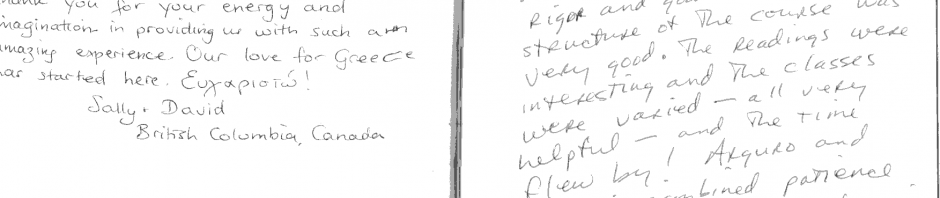 you for your energy and
imagination in providing us with such an
amazing experience. Our love for Greece
has started here. Ευχαριστώ!
Sally + David
British Columbia, Canada
Rigor and
structure of the course was
very good. The readings were
interesting and the classes
were varied – all very
helpful – and the time
flew by! Arguro and
combined patience